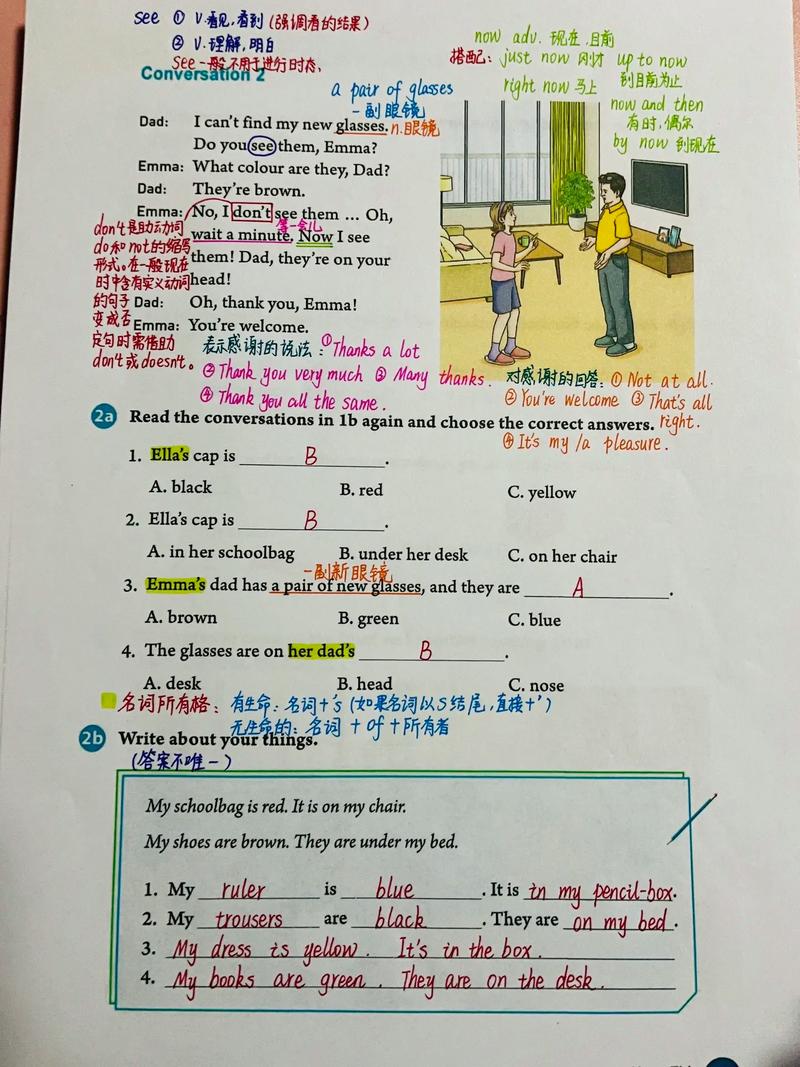 see ① v.看见,看到(强调看的结果)
② v.理解,明白
see一般不用于进行时态、
now adv. 现在,目前
搭配: just now 刚才 up to now
到目前为止
right now 马上
now and then
有时,偶尔
by now 到现在
Conversation 2
a pair of glasses
一副眼镜
Dad: I can't find my new glasses. n.眼镜
Do you see them, Emma?
Emma: What colour are they, Dad?
Dad: They're brown.
Emma: No, I don't see them ... Oh,
等一会儿
wait a minute. Now I see
them! Dad, they're on your
head!
Dad: Oh, thank you, Emma!
Emma: You're welcome.
don't是助动词
do和not的缩写
形式。在一般现在
时中含有实义动词
的句子
变成否
定句时需借助
don't或doesn't。
表示感谢的说法:①Thanks a lot
②Thank you very much ③ Many thanks.
④ Thank you all the same.
对感谢的回答: ① Not at all.
② You're welcome ③ That's all
right.
④ It's my /a pleasure.
2a Read the conversations in 1b again and choose the correct answers.
1. Ella's cap is B.
A. black B. red C. yellow
2. Ella's cap is B.
A. in her schoolbag B. under her desk C. on her chair
一副新眼镜
3. Emma's dad has a pair of new glasses, and they are A.
A. brown B. green C. blue
4. The glasses are on her dad's B.
A. desk B. head C. nose
名词所有格: 有生命: 名词+'s (如果名词以s结尾,直接+')
无生命的: 名词 + of + 所有者
2b Write about your things.
(答案不唯一)
My schoolbag is red. It is on my chair.
My shoes are brown. They are under my bed.
1. My ruler is blue. It is in my pencil-box.
2. My trousers are black. They are on my bed.
3. My dress is yellow. It's in the box.
4. My books are green. They are on the desk.